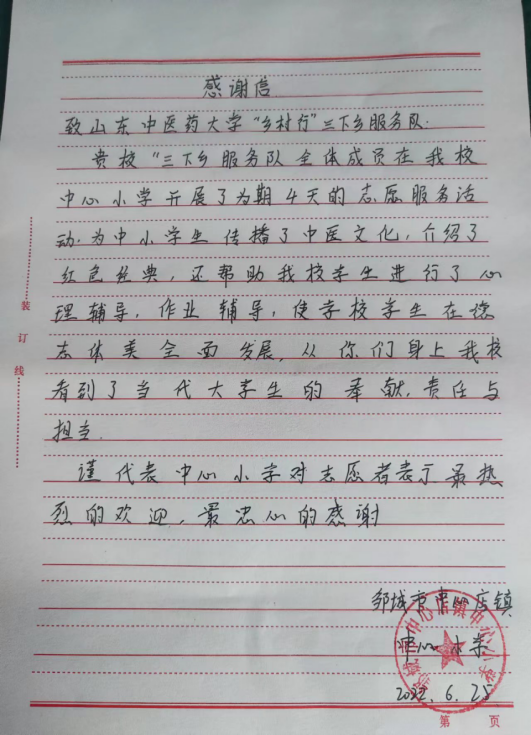 感谢信
致山东中医药大学“乡村行”三下乡服务队.
贵校“三下乡服务队全体成员在我校
中心小学开展了为期4天的志愿服务活
动.为中小学生传播了中医文化,介绍了
红色经典,还帮助我校学生进行了心
理辅导,作业辅导,使学校学生在德
志体美全面发展,从你们身上我校
看到了当代大学生的奉献,责任与
担当.
谨代表中心小学对志愿者表示最热
烈的欢迎,最忠心的感谢
邹城市中心店镇
中心小学
2022.6.25
装
订
线
第 页